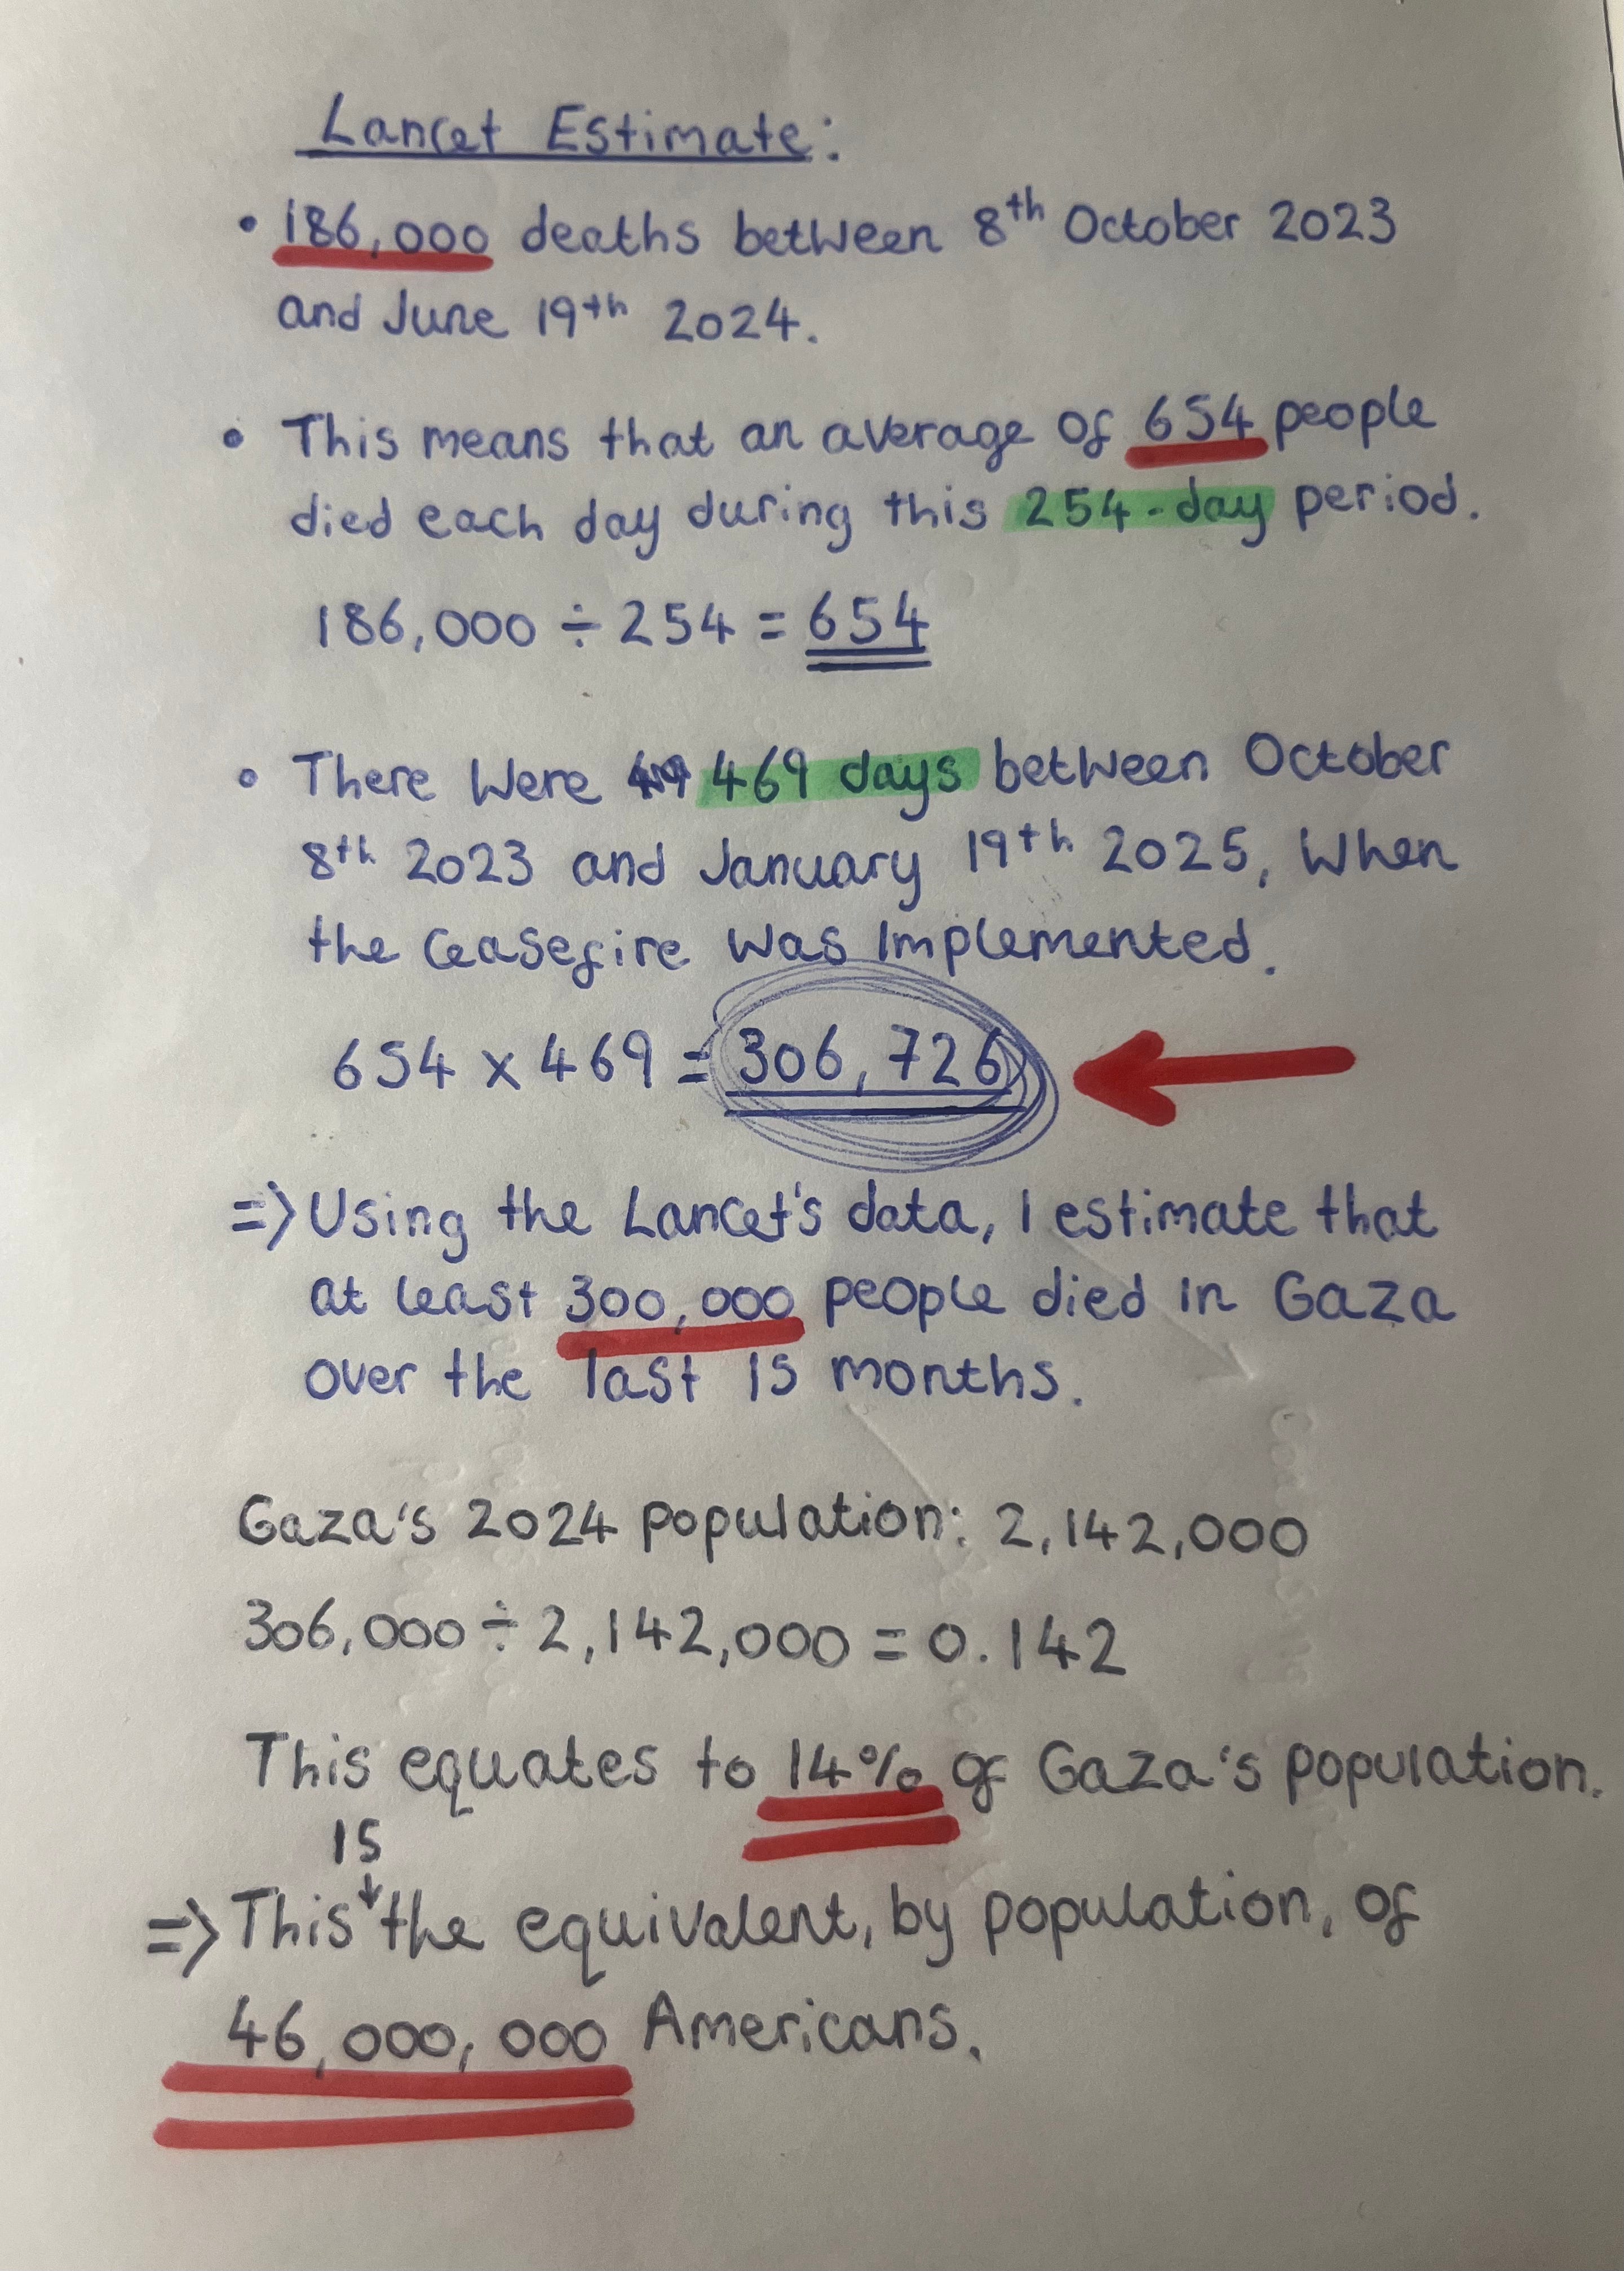 Lancet Estimate:
• 186,000 deaths between 8th October 2023
and June 19th 2024.
• This means that an average of 654 people
died each day during this 254-day period.
186,000 ÷ 254 = 654
• There were 469 days between October
8th 2023 and January 19th 2025, when
the ceasefire was implemented.
654 x 469 = 306,726
=> Using the Lancet's data, I estimate that
at least 300,000 people died in Gaza
over the last 15 months.
Gaza's 2024 population: 2,142,000
306,000 ÷ 2,142,000 = 0.142
This equates to 14% of Gaza's population.
is
=> This the equivalent, by population, of
46,000,000 Americans.